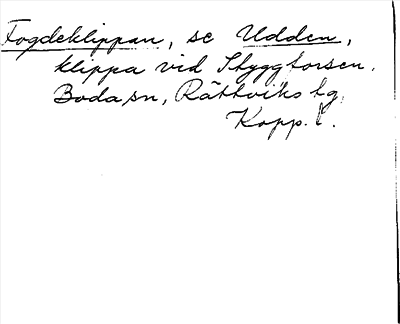 Fogdeklippan, se Udden,
klippa vid Styggforsen.
Boda sn, Rättviks tg,
Kopp. l.